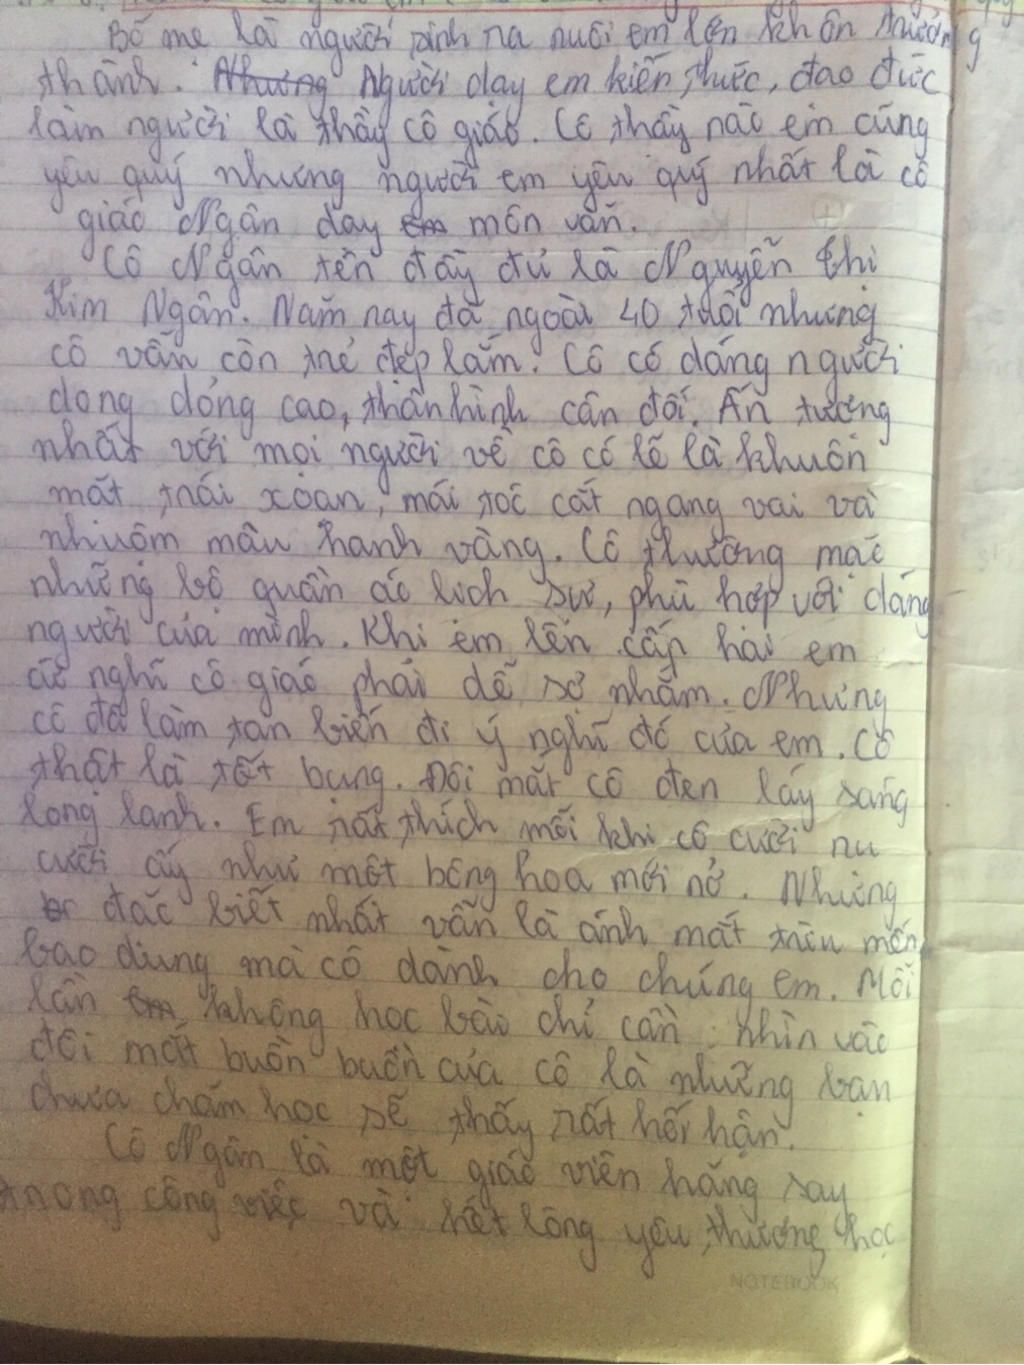 Bố mẹ là người sinh ra nuôi em lớn khôn trưởng
thành. Nhưng Người dạy em kiến thức, đạo đức
làm người là thầy cô giáo. Cô thầy nào em cũng
yêu quý nhưng người em yêu quý nhất là cô
giáo Ngân dạy em môn văn.
Cô Ngân tên đầy đủ là Nguyễn Thị
Kim Ngân. Năm nay đã ngoài 40 tuổi nhưng
cô vẫn còn trẻ đẹp lắm. Cô có dáng người
dong dỏng cao, thân hình cân đối. Ấn tượng
nhất với mọi người về cô có lẽ là khuôn
mặt trái xoan, mái tóc cắt ngang vai và
nhuộm mầu hanh vàng. Cô thường mặc
những bộ quần áo lịch sự, phù hợp với dáng
người của mình. Khi em lên cấp hai em
cứ nghĩ cô giáo phải dễ sợ nhắm. Nhưng
cô đã làm tan biến đi ý nghĩ đó của em. Cô
thật là tốt bụng. Đôi mắt cô đen láy sáng
long lanh. Em rất thích mỗi khi cô cười nụ
cười ấy như một bông hoa mới nở. Nhưng
đặc biệt nhất vẫn là ánh mắt trìu mến
bao dung mà cô dành cho chúng em. Mỗi
lần em không học bài chỉ cần nhìn vào
đôi mắt buồn buồn của cô là những bạn
chưa chăm học sẽ thấy rất hối hận.
Cô Ngân là một giáo viên hăng say
trong công việc và hết lòng yêu thương học
NOTEBOOK